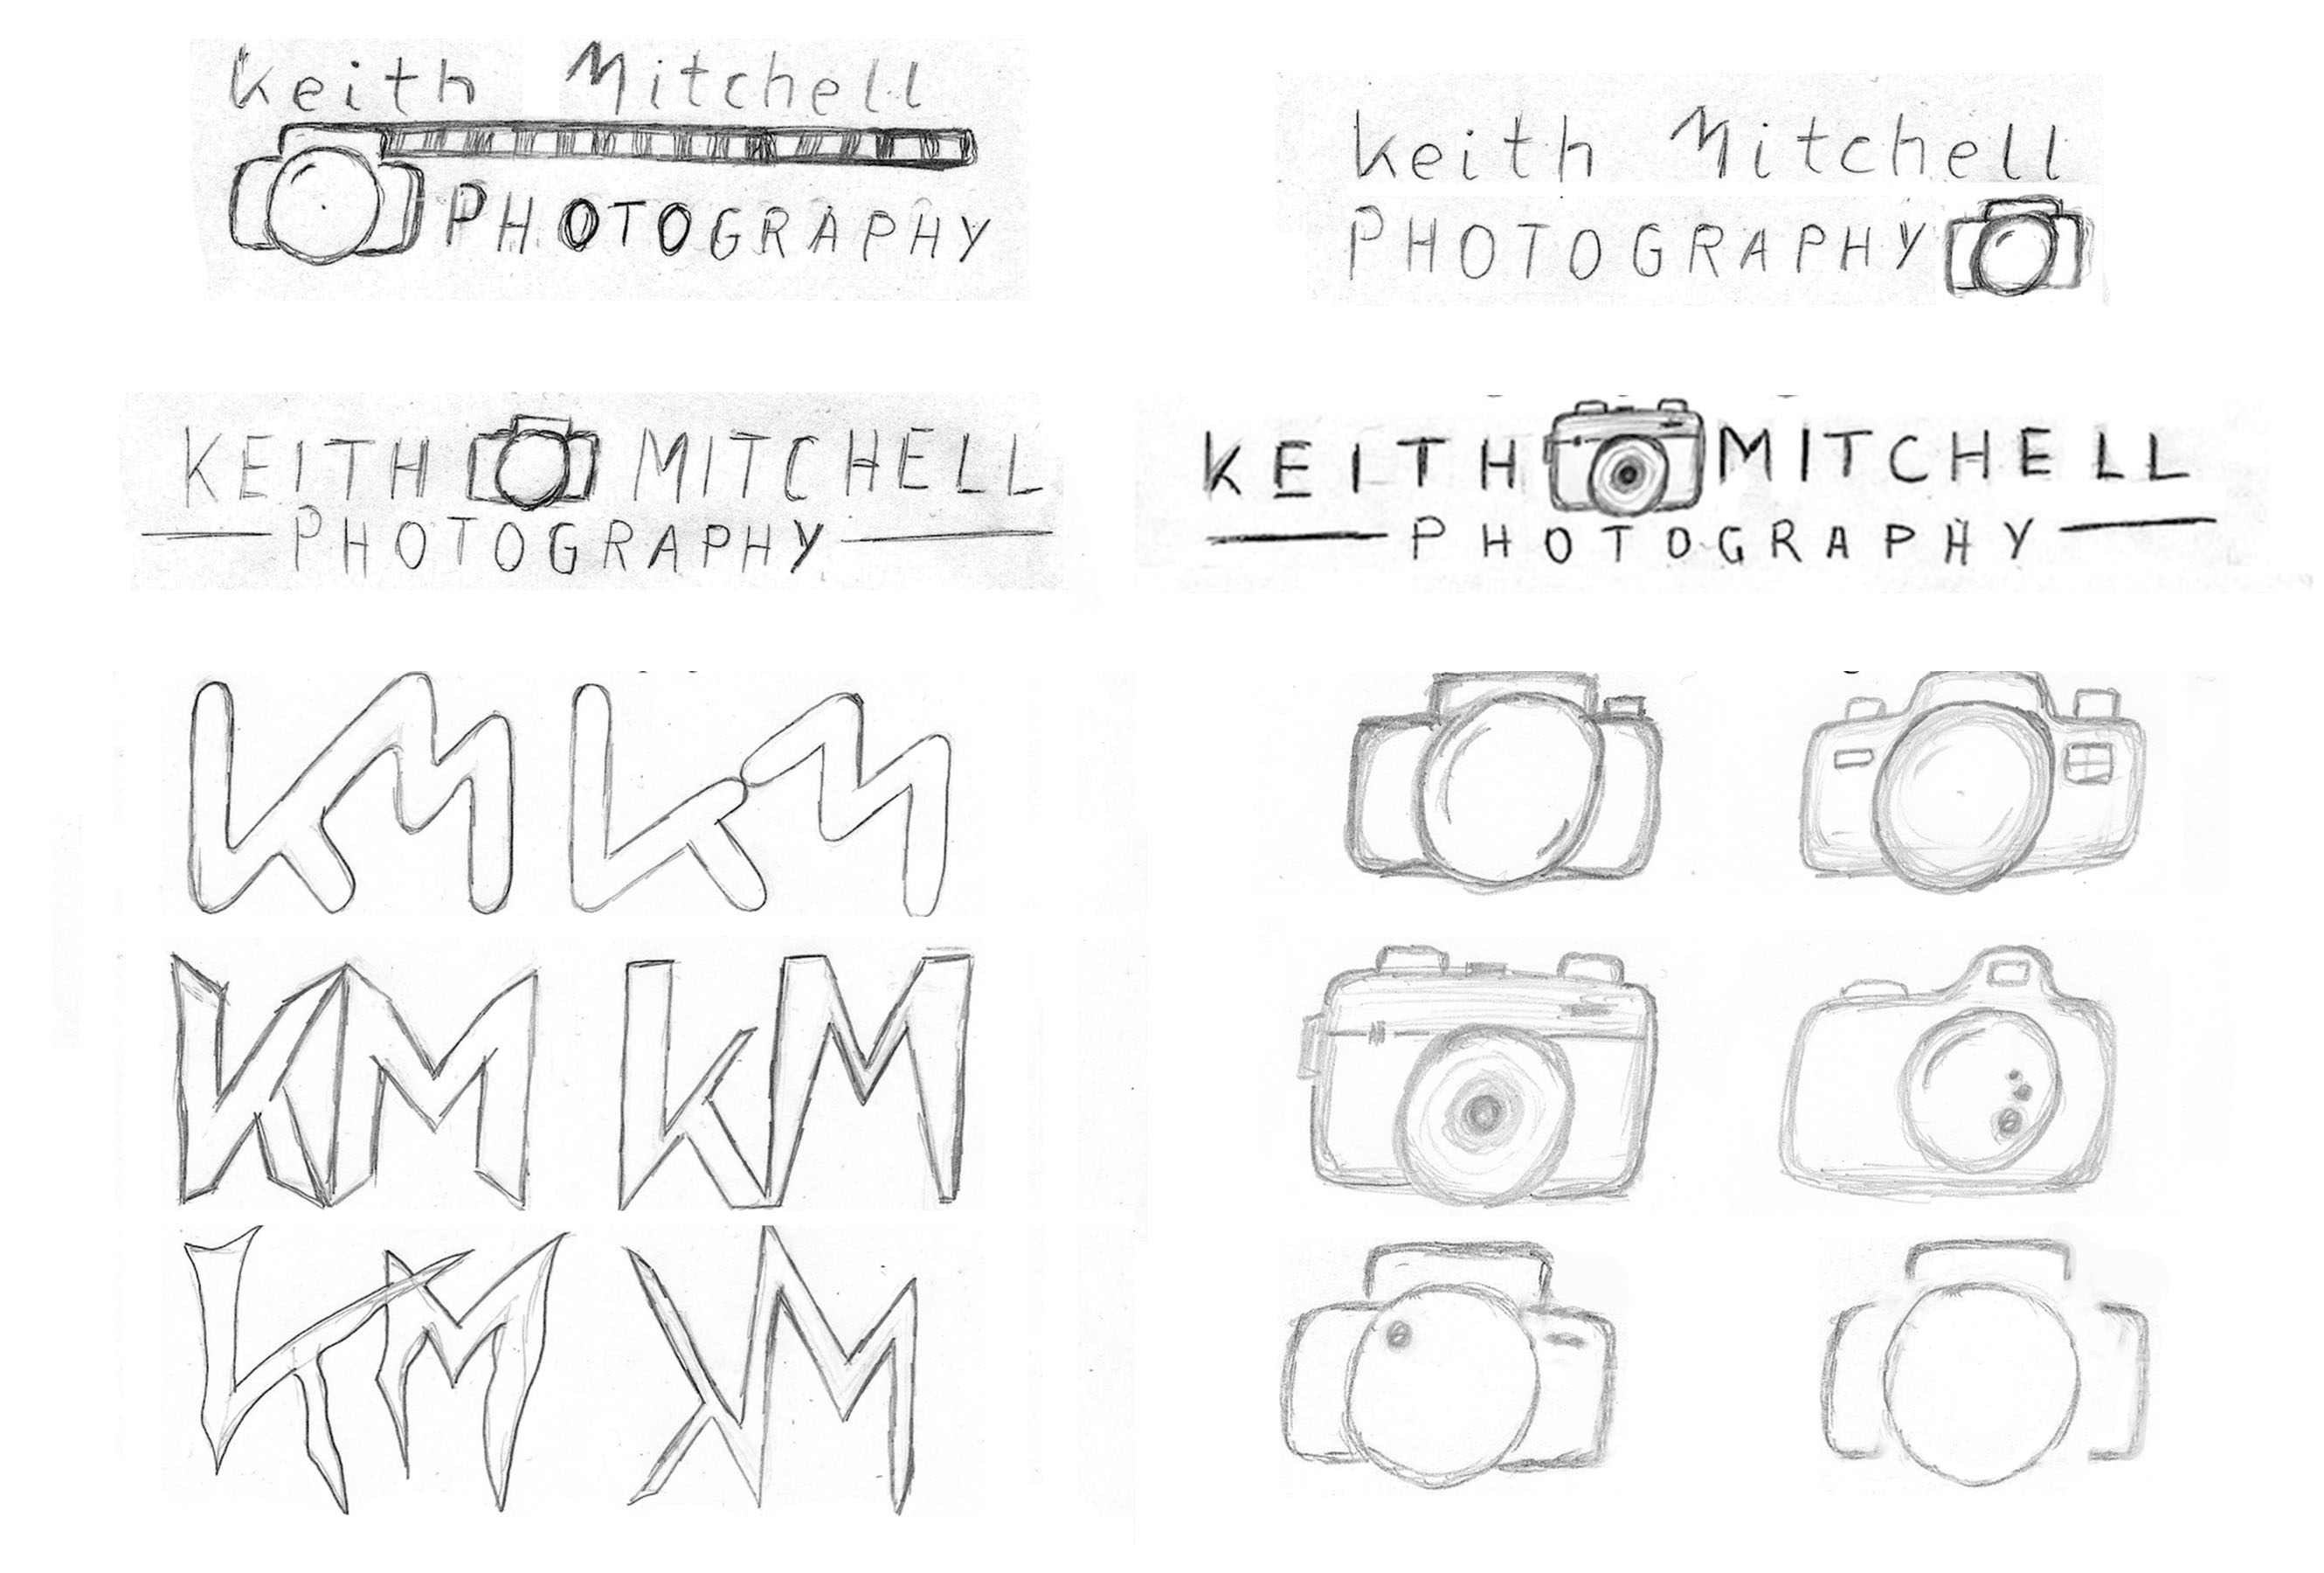 Keith Mitchell
PHOTOGRAPHY
Keith Mitchell
PHOTOGRAPHY
KEITH MITCHELL
PHOTOGRAPHY
KEITH MITCHELL
PHOTOGRAPHY
KM KM
KM KM
KM KM